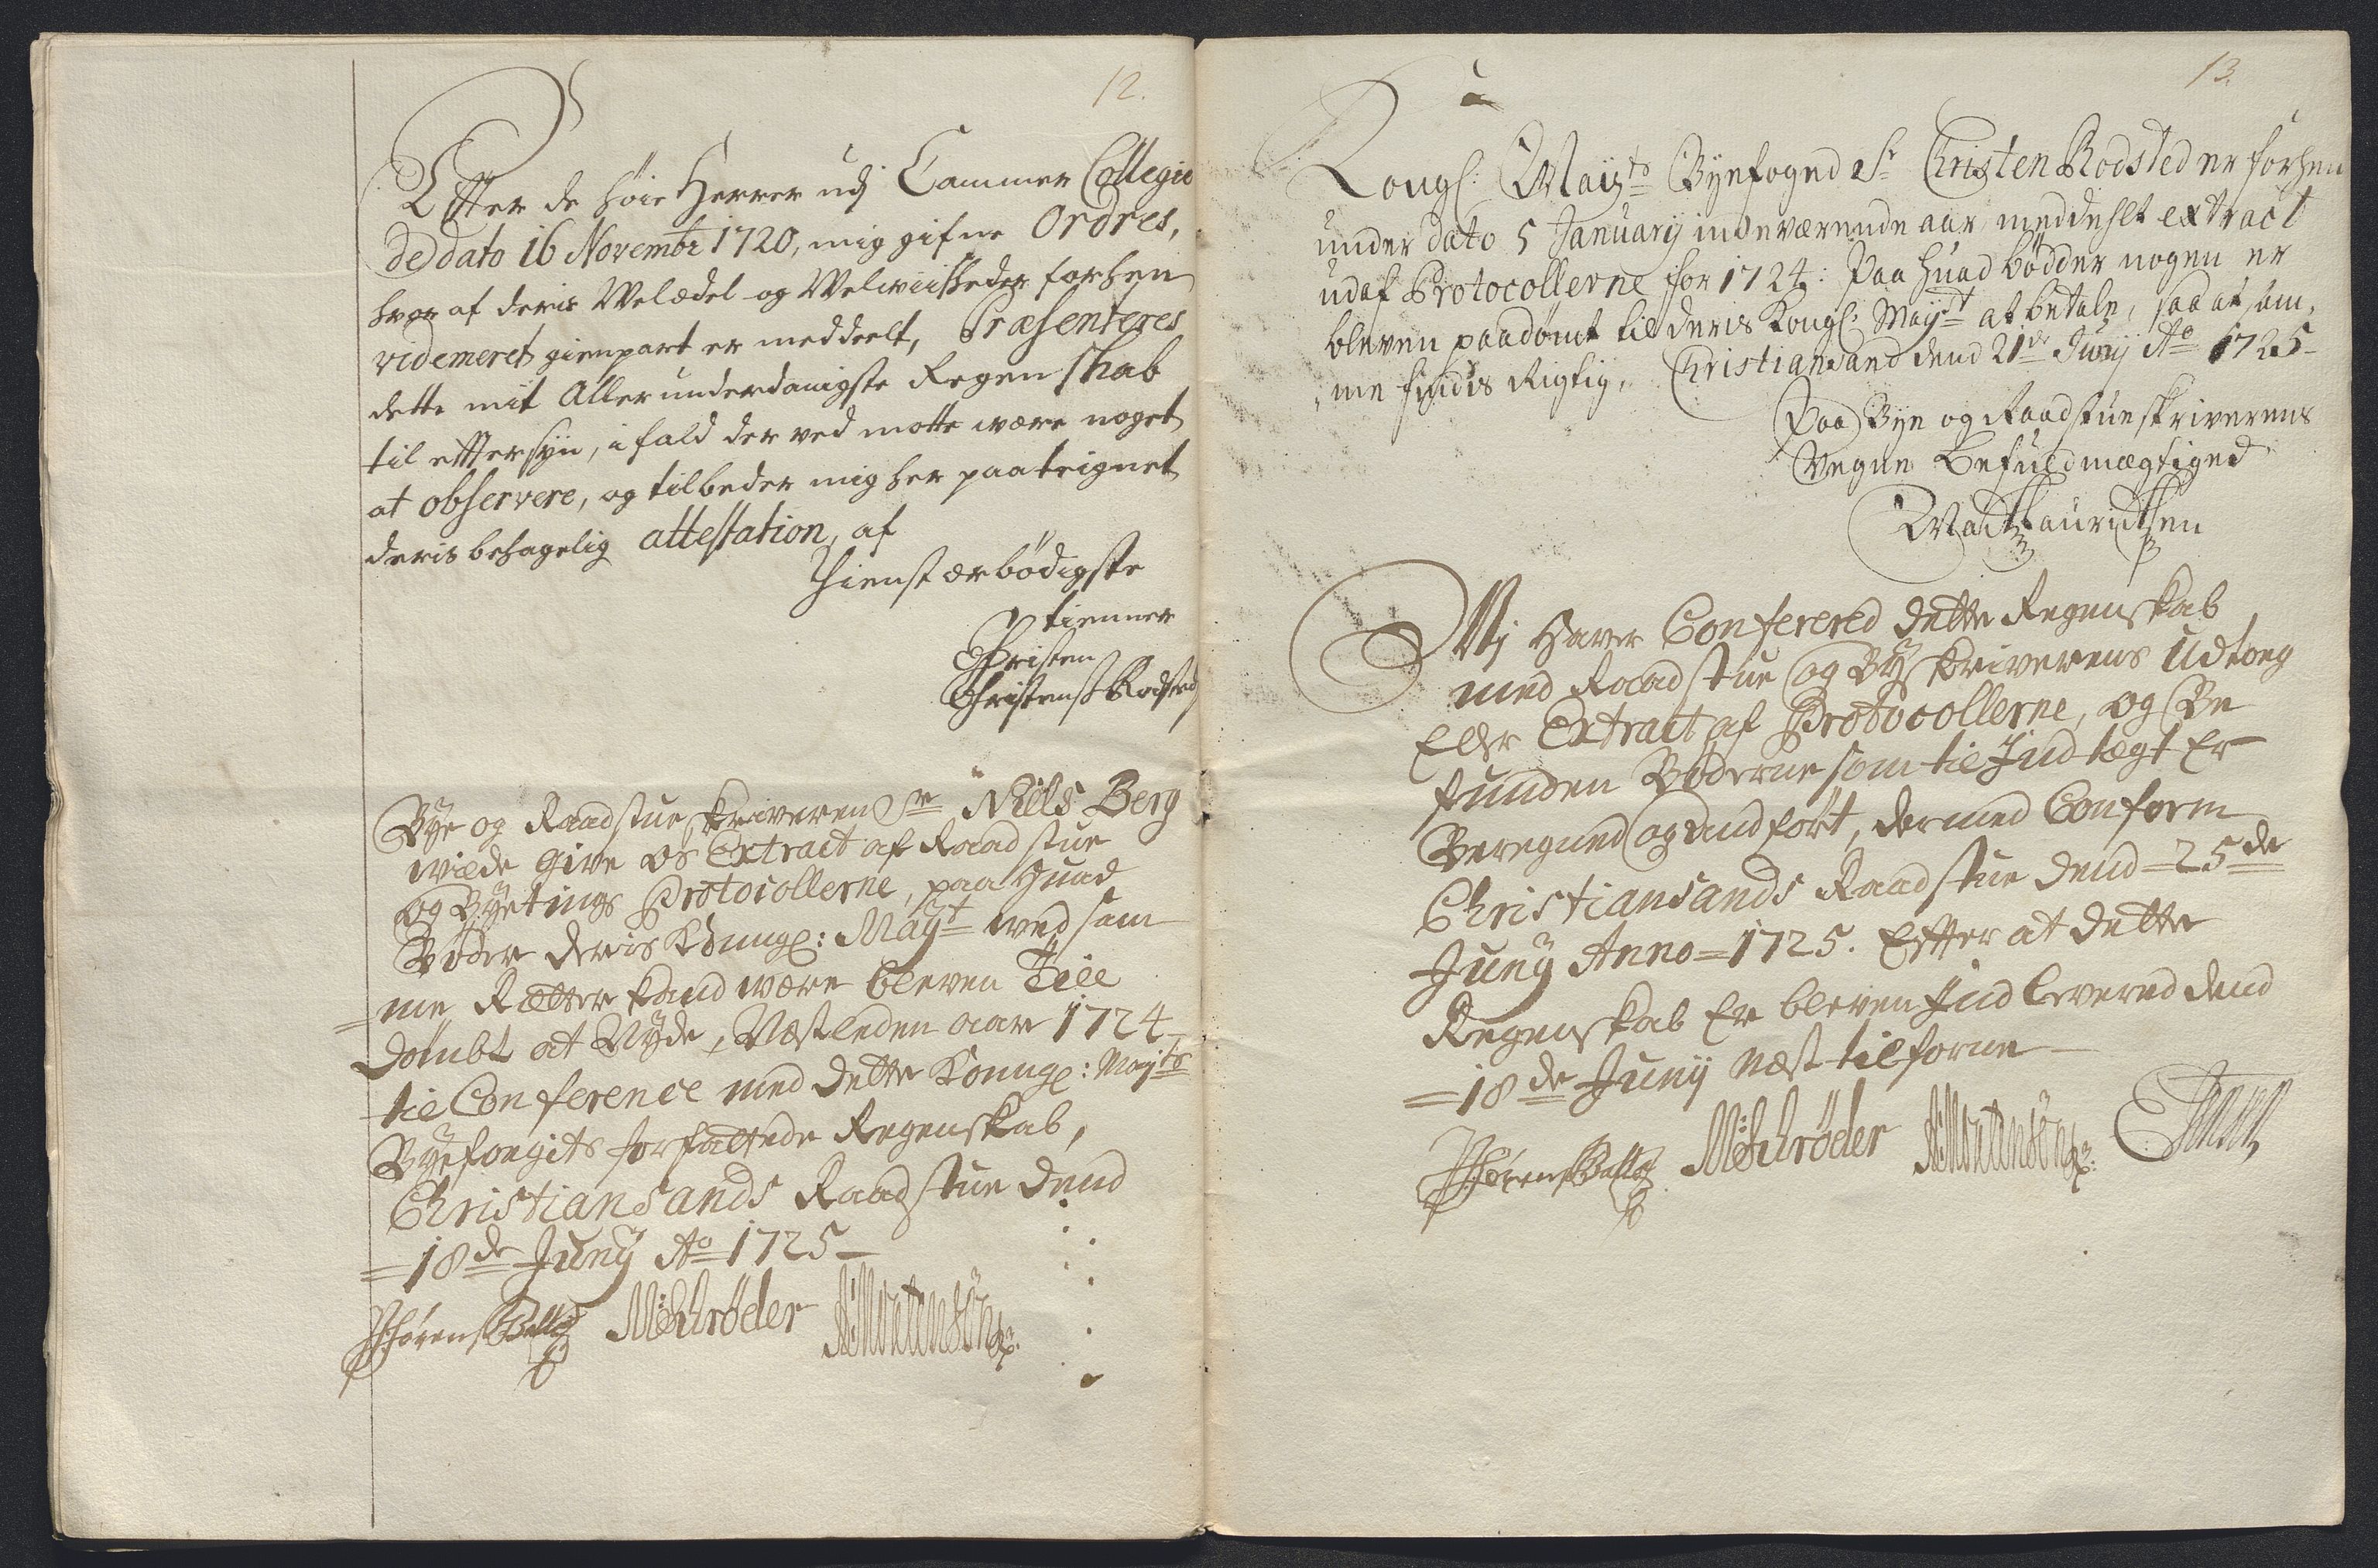 12.
Effter de høie Herrer udj Cammer Collegio
de dato 16 Novembr 1720, mig gifne Ordres,
hvor af deris Welædel og Welwiisheder forhen
videmeret gienpart er meddeelt, Præsenteres
dette mit Allerunderdanigste Regenskab
til efftersyn, i fald der ved motte være noget
at observere, og tilbeder mig her paateignet
deris behagelig attestation, af
Tienst ærbödigste
tienner
Christen
Christenss Rodsted
Bye og Raadstue skriveren Sr Niels Berg
wilde give os Extract af Raadstue
og Byetings Protocollerne, paa huad
Böder deris Kongl: Mayt ved sam
=me Rætter kand være bleven Till
dömbt at Nyde, Næstleden aar 1724
til Conference med dette Kongl: Mayts
Byefogits forfattede Regenskab,
Christiansands Raadstue dend
=18de Juny Ao 1725
Sørens Balle MSchrøder
13.
Kongl: Mayts Byefoged Sr Christen Rodsted er forhen
under dato 5 January indeværende aar meddehlt extract
udaf Protocollerne for 1724: Paa huad bödder nogen er
bleven paadömt til deris Kongl: Mayt at betale, saa at sam,
,me findis Rigtig, Christiansand dend 21de Junij Ao 1725
Paa Bye og Raadstueskriverens
Vegne Befuldmægtiged
Lauridtsen
Wj Haver Conferered dette Regenskab
med Raadstue og Byskriverens Udtoeg
Eller Extract af Protocollerne, og Be
funden Böderne som til Indtægt Er
Beregned og Andfört, dermed Conform
Christiansands Raadstue dend =25de
Juny Anno =1725. Effter at dette
Regenskab Er bleven Indlevered dend
=18de Junij næst tilforne
Sørens Balle MSchrøder